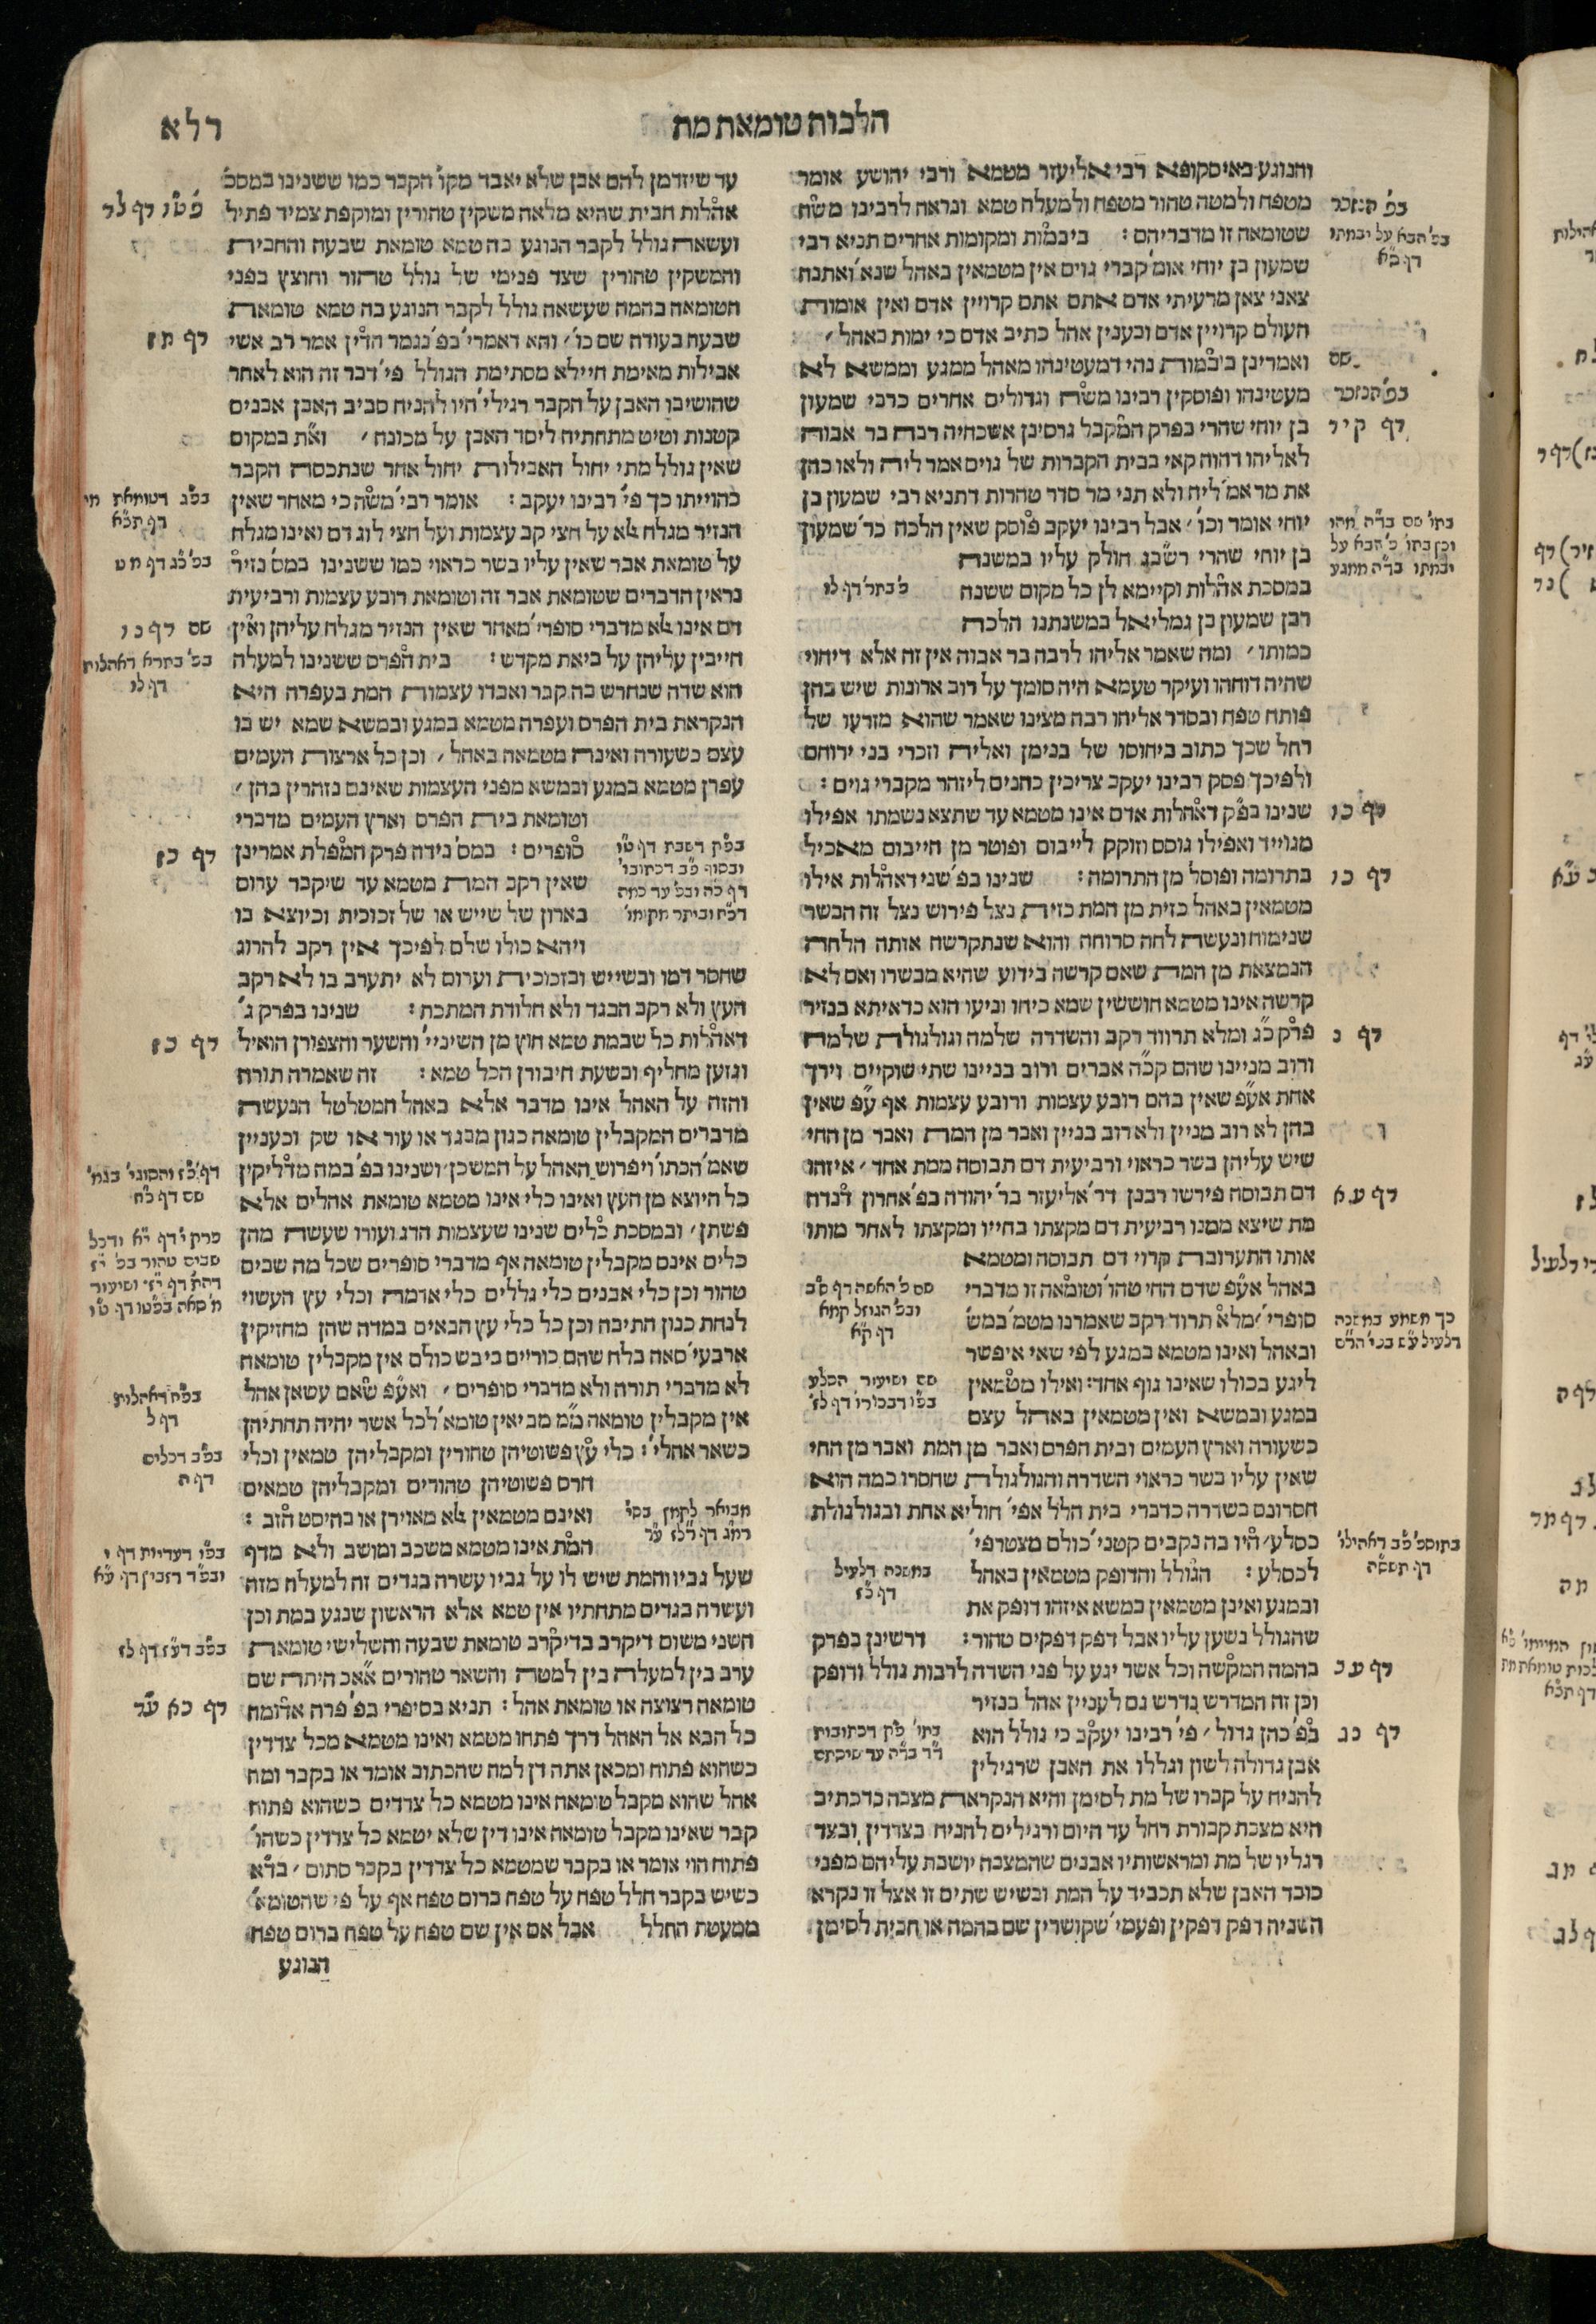 הלכות טומאת מת
רלא
והנוגע באיסקופא רבי אליעזר מטמא ורבי יהושע אומר
מטפח ולמטה טהור מטפח ולמעלה טמא ונראה לרבינו משה
שטומאה זו מדבריהם : ביבמות ומקומות אחרים תניא רבי
שמעון בן יוחי אומ' קברי גוים אין מטמאין באהל שנא' ואתנה
צאני צאן מרעיתי אדם אתם אתם קרויין אדם ואין אומות
העולם קרויין אדם ובענין אהל כתיב אדם כי ימות באהל ׳
ואמרינן ביבמות נהי דמעטינהו מאהל ממגע וממשא לא
מעטינהו ופוסקין רבינו משה וגדולים אחרים כרבי שמעון
בן יוחי שהרי בפרק המקבל גרסינן אשכחיה רבה בר אבוה
לאליהו דהוה קאי בבית הקברות של גוים אמר ליה ולאו כהן
את מר אמ' ליה ולא תני מר סדר טהרות דתניא רבי שמעון בן
יוחי אומר וכו' אבל רבינו יעקב פוסק שאין הלכה כר' שמעון
בן יוחי שהרי רשב"ג חולק עליו במשנה
במסכת אהלות וקיימא לן כל מקום ששנה
רבן שמעון בן גמליאל במשנתנו הלכה
כמותו ׳ ומה שאמר אליהו לרבה בר אבוה אין זה אלא דיחוי
שהיה דוחהו ועיקר טעמא היה סומך על רוב ארונות שיש בהן
פותח טפח ובסדר אליהו רבה מצינו שאמר שהוא מזרעו של
רחל שכך כתוב ביחוסו של בנימן ואליה וזכרי בני ירוחם
ולפיכך פסק רבינו יעקב צריכין כהנים ליזהר מקברי גוים :
שנינו בפ"ק דאהלות אדם אינו מטמא עד שתצא נשמתו אפילו
מגוייד ואפילו גוסס וזוקק לייבום ופוטר מן הייבום מאכיל
בתרומה ופוסל מן התרומה : שנינו בפ' שני דאהלות אילו
מטמאין באהל כזית מן המת כזית נצל פירוש נצל זה הבשר
שנימוח ונעשה לחה סרוחה והוא שנתקרשה אותה הלחה
הנמצאת מן המת שאם קרשה בידוע שהיא מבשרו ואם לא
קרשה אינו מטמא חוששין שמא כיחו וניעו הוא כדאיתא בנזיר
פרק כ"ג ומלא תרווד רקב והשדרה שלמה וגולגולת שלמה
ורוב מניינו שהם קכ"ה אברים ורוב בניינו שתי שוקיים וירך
אחת אע"פ שאין בהם רובע עצמות ורובע עצמות אף ע"פ שאין
בהן לא רוב מניין ולא רוב בניין ואבר מן המת ואבר מן החי
שיש עליהן בשר כראוי ורביעית דם תבוסה ממת אחד ׳ איזהו
דם תבוסה פירשו רבנן דר' אליעזר בר' יהודה בפ' אחרון דנדה
מת שיצא ממנו רביעית דם מקצתו בחייו ומקצתו לאחר מותו
אותו התערובת קרוי דם תבוסה ומטמא
באהל אע"פ שדם החי טהו' וטומאה זו מדברי
סופרי' ׳ מלא תרוד רקב שאמרנו מטמ' במש'
ובאהל ואינו מטמא במגע לפי שאי איפשר
ליגע בכולו שאינו גוף אחד : ואילו מטמאין
במגע ובמשא ואין מטמאין באהל עצם
כשעורה וארץ העמים ובית הפרס ואבר מן המת ואבר מן החי
שאין עליו בשר כראוי השדרה והגולגולת שחסרו כמה הוא
חסרונם בשדרה כדברי בית הלל אפי' חוליא אחת ובגולגולת
כסלע ׳ היו בה נקבים קטני' כולם מצטרפי'
לכסלע : הגולל והדופק מטמאין באהל
ובמגע ואינן מטמאין במשא איזהו דופק את
שהגולל נשען עליו אבל דפק דפקים טהור : דרשינן בפרק
בהמה המקשה וכל אשר יגע על פני השדה לרבות גולל ודופק
וכן זה המדרש נדרש גם לעניין אהל בנזיר
בפ' כהן גדול ׳ פי' רבינו יעקב כי גולל הוא
אבן גדולה לשון וגללו את האבן שרגילין
להניח על קברו של מת לסימן והיא הנקראת מצבה כדכתיב
היא מצבת קבורת רחל עד היום ורגילים להניח בצדדין ובצד
רגליו של מת ומראשותיו אבנים שהמצבה יושבת עליהם מפני
כובד האבן שלא תכביד על המת ובשיש שתים זו אצל זו נקרא
השניה דפק דפקין ופעמי' שקושרין שם בהמה או חבית לסימן
בפ' הנזכר
בפ' הבא על יבמתו
דף ס"א
שם
בפ' הנזכר
דף קיד
בתו' שם בד"ה מהו
וכן בתו' פ' הבא על
יבמתו בד"ה ממגע
פ' בתר' דף לו
דף כו
דף כו
דף נ
דף עא
שם פ' האשה דף ס"ב
ובפ' הגוזל קמא
דף ק"א
כך משמע במשנה
דלעיל ע"ש בפי' הר"ש
שם ושיעור הסלע
בפ"ו דבכורו' דף לז'
בתוספ' פ"ב דאהילו'
דף תשפ"ה
במשנה דלעיל
דף כ"ז
דף עב
דף נג
בתו' פ"ק דכתובות
ד"ד בד"ה עד שיסתם
עד שיזדמן להם אבן שלא יאבד מקו' הקבר כמו ששנינו במסכ'
אהלות חבית שהיא מלאה משקין טהורין ומוקפת צמיד פתיל
ועשאה גולל לקבר הנוגע בה טמא טומאת שבעה והחבית
והמשקין טהורין שצד פנימי של גולל טהור וחוצץ בפני
הטומאה בהמה שעשאה גולל לקבר הנוגע בה טמא טומאת
שבעה בעודה שם כו' ׳ והא דאמרי' בפ' נגמר הדין אמר רב אשי
אבילות מאימת חיילא מסתימת הגולל פי' דבר זה הוא לאחר
שהושיבו האבן על הקבר רגילי' היו להניח סביב האבן אבנים
קטנות וטיט מתחתיה ליסד האבן על מכונה ׳ וא"ת במקום
שאין גולל מתי יחול האבילות יחול אחר שנתכסה הקבר
כהוייתו כך פי' רבינו יעקב : אומר רבי' משה כי מאחר שאין
הנזיר מגלח אלא על חצי קב עצמות ועל חצי לוג דם ואינו מגלח
על טומאת אבר שאין עליו בשר כראוי כמו ששנינו במס' נזיר
נראין הדברים שטומאת אבר זה וטומאת רובע עצמות ורביעית
דם אינו אלא מדברי סופרי' מאחר שאין הנזיר מגלח עליהן ואין
חייבין עליהן על ביאת מקדש : בית הפרס ששנינו למעלה
הוא שדה שנחרש בה קבר ואבדו עצמות המת בעפרה היא
הנקראת בית הפרס ועפרה מטמא במגע ובמשא שמא יש בו
עצם כשעורה ואינה מטמאה באהל ׳ וכן כל ארצות העמים
עפרן מטמא במגע ובמשא מפני העצמות שאינם נזהרין בהן ׳
וטומאת בית הפרס וארץ העמים מדברי
סופרים : במס' נידה פרק המפלת אמרינן
שאין רקב המת מטמא עד שיקבר ערום
בארון של שייש או של זכוכית וכיוצא בו
ויהא כולו שלם לפיכך אין רקב להרוג
שחסר דמו ובשייש ובזכוכית וערום לא יתערב בו לא רקב
העץ ולא רקב הבגד ולא חלודת המתכת : שנינו בפרק ג'
דאהלות כל שבמת טמא חוץ מן השיניי' והשער והצפורן הואיל
וגזען מחליף ובשעת חיבורן הכל טמא : זה שאמרה תורה
והזה על האהל אינו מדבר אלא באהל המטלטל הנעשה
מדברים המקבלין טומאה כגון מבגד או עור או שק וכעניין
שאמ' הכתו' ויפרוש האהל על המשכן ׳ ושנינו בפ' במה מדליקין
כל היוצא מן העץ ואינו כלי אינו מטמא טומאת אהלים אלא
פשתן ׳ ובמסכת כלים שנינו שעצמות הדג ועורו שעשה מהן
כלים אינם מקבלין טומאה אף מדברי סופרים שכל מה שבים
טהור וכן כלי אבנים כלי גללים כלי אדמה וכלי עץ העשוי
לנחת כגון התיבה וכן כל כלי עץ הבאים במדה שהן מחזיקין
ארבעי' סאה בלח שהם כוריים ביבש כולם אין מקבלין טומאה
לא מדברי תורה ולא מדברי סופרים ׳ ואע"פ שאם עשאן אהל
אין מקבלין טומאה מ"מ מביאין טומא' לכל אשר יהיה תחתיהן
כשאר אהלי' : כלי עץ פשוטיהן טהורין ומקבליהן טמאין וכלי
חרס פשוטיהן טהורים ומקבליהן טמאים
ואינם מטמאין אלא מאוירן או בהיסט הזב :
המת אינו מטמא משכב ומושב ולא מדף
שעל גביו והמת שיש לו על גביו עשרה בגדים זה למעלה מזה
ועשרה בגדים מתחתיו אין טמא אלא הראשון שנגע במת וכן
השני משום דיקרב בדיקרב טומאת שבעה והשלישי טומאת
ערב בין למעלה בין למטה והשאר טהורים אא"כ היתה שם
טומאה רצוצה או טומאת אהל : תניא בסיפרי בפ' פרה אדומה
כל הבא אל האהל דרך פתחו מטמא ואינו מטמא מכל צדדין
כשהוא פתוח ומכאן אתה דן למה שהכתוב אומר או בקבר ומה
אהל שהוא מקבל טומאה אינו מטמא כל צדדים כשהוא פתוח
קבר שאינו מקבל טומאה אינו דין שלא יטמא כל צדדין כשהו'
פתוח הוי אומר או בקבר שמטמא כל צדדין בקבר סתום ׳ בד"א
כשיש בקבר חלל טפח על טפח ברום טפח אף על פי שהטומא'
ממעטת החלל אבל אם אין שם טפח על טפח ברום טפח
הנוגע
פט"ו דף לד
דף מז
בפ"ג דטומאת מת
דף תכ"א
בפ' כ"ג דף מט
שם דף נו
בפ' בתרא דאהלות
דף לו
דף כז
בפ"ק דשבת דף ט"ו
ובסוף פ"ב דכתובו'
דף כ"ח ובפ' עד כמה
דכ"ח וביתר מקומו'
דף כז
דף כ"ז והסוגי' בגמ'
שם דף כ"ח
פרק י' דף י"א ודכל
שבים טהור בפ' י"ז
דהת' דף י"ז ושיעור
מ' סאה בפט"ו דף ט"ו
בפ"ח דאהלות
דף ל
בפ"ב דכלים
דף ה
מבואר לקמן בסי'
רמ"ג דף רל"ז ע"ד
בפ"ו דעדיות דף י
ובפ"ד דזבין דף ע"א
בפ"ב דע"ז דף לז
דף כא ע"ד